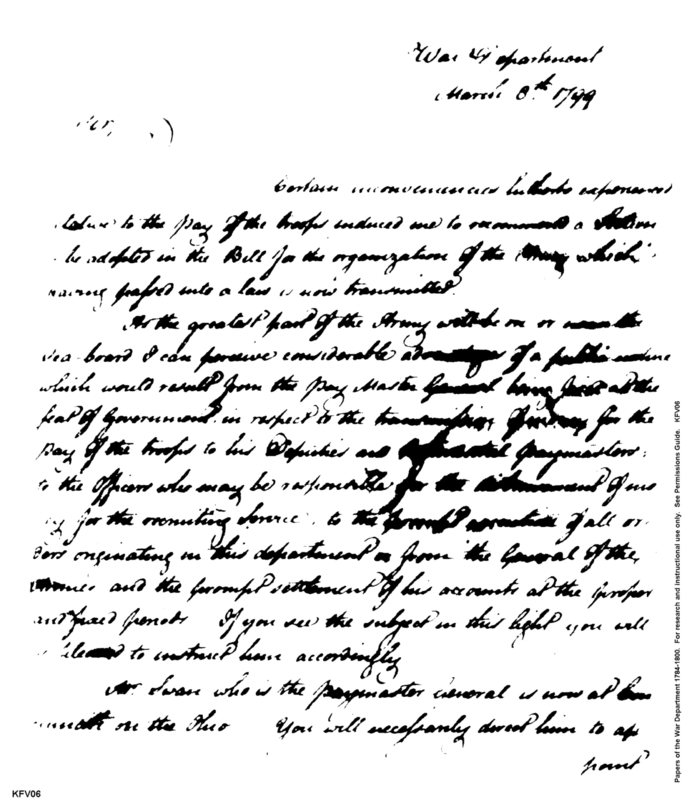 War Department
March 8th 1799
Sir,
Certain inconveniencies hitherto experienced
relative to the pay of the troops induced me to recommend a Section
be adopted in the Bill for the organization of the Army which
having passed into a law is now transmitted.
As the greatest part of the Army will be on or near the
sea-board I can perceive considerable advantages of a public nature
which would result from the Pay Master General being fixed at the
seat of Government in respect to the transmission of money for the
Pay of the troops to his Deputies and Regimental paymasters;
to the Officers who may be responsible for the disbursement of mo
ney for the recruiting service, to the prompt execution of all or
ders originating in this department or from the General of the
Armies and the prompt settlement of his accounts at the proper
and fixed periods If you see the subject in this light you will
be pleased to instruct him accordingly
Mr. Swan who is the paymaster General is now at Cin
cinnati on the Ohio You will necessarily direct him to ap
point
KFV06
Papers of the War Department 1784-1800. For research and instructional use only. See Permissions Guide. KFV06